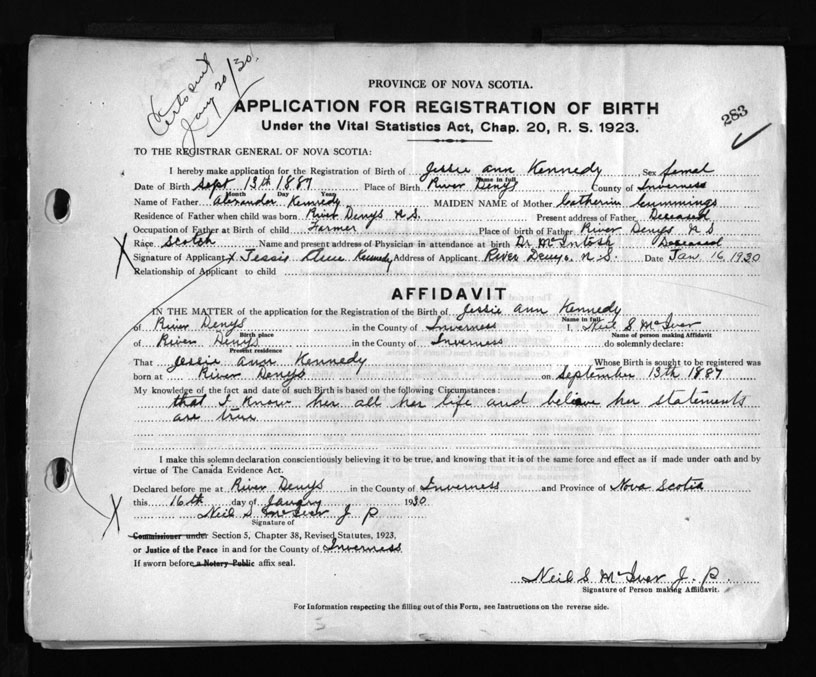 Cert sent
Jany 20/30.
283
PROVINCE OF NOVA SCOTIA.
APPLICATION FOR REGISTRATION OF BIRTH
Under the Vital Statistics Act, Chap. 20, R. S. 1923.
TO THE REGISTRAR GENERAL OF NOVA SCOTIA:
I hereby make application for the Registration of Birth of Jessie ann Kennedy Sex femal
Name in full
Date of Birth Sept 13th 1887 Place of Birth River Denys County of Inverness
Month Day Year
Name of Father Alexander Kennedy MAIDEN NAME of Mother Catherin Cummings
Residence of Father when child was born River Denys N S. Present address of Father Deceased
Occupation of Father at Birth of child Farmer Place of birth of Father River Denys N S
Race Scotch Name and present address of Physician in attendance at birth Dr McIntosh Deceased
X Signature of Applicant x Jessie Ann Kennedy Address of Applicant River Denys. N. S. Date Jan. 16 1930
Relationship of Applicant to child
AFFIDAVIT
IN THE MATTER of the application for the Registration of the Birth of Jessie ann Kennedy
Name in full
of River Denys in the County of Inverness I, Neil S McIver
Birth place Name of person making Affidavit
of River Denys in the County of Inverness do solemnly declare:
Present residence
That Jessie ann Kennedy Whose Birth is sought to be registered was
born at River Denys on September 13th 1887
My knowledge of the fact and date of such Birth is based on the following Circumstances:
that I know her all her life and believe her statements
are true
I make this solemn declaration conscientiously believing it to be true, and knowing that it is of the same force and effect as if made under oath and by
virtue of The Canada Evidence Act.
Declared before me at River Denys in the County of Inverness and Province of Nova Scotia
this 16th day of January 1930
X Neil S McIver J P
Signature of
Commissioner under Section 5, Chapter 38, Revised Statutes, 1923,
or Justice of the Peace in and for the County of Inverness
If sworn before a Notary Public affix seal.
Neil S McIver J. P.
Signature of Person making Affidavit.
For Information respecting the filling out of this Form, see Instructions on the reverse side.